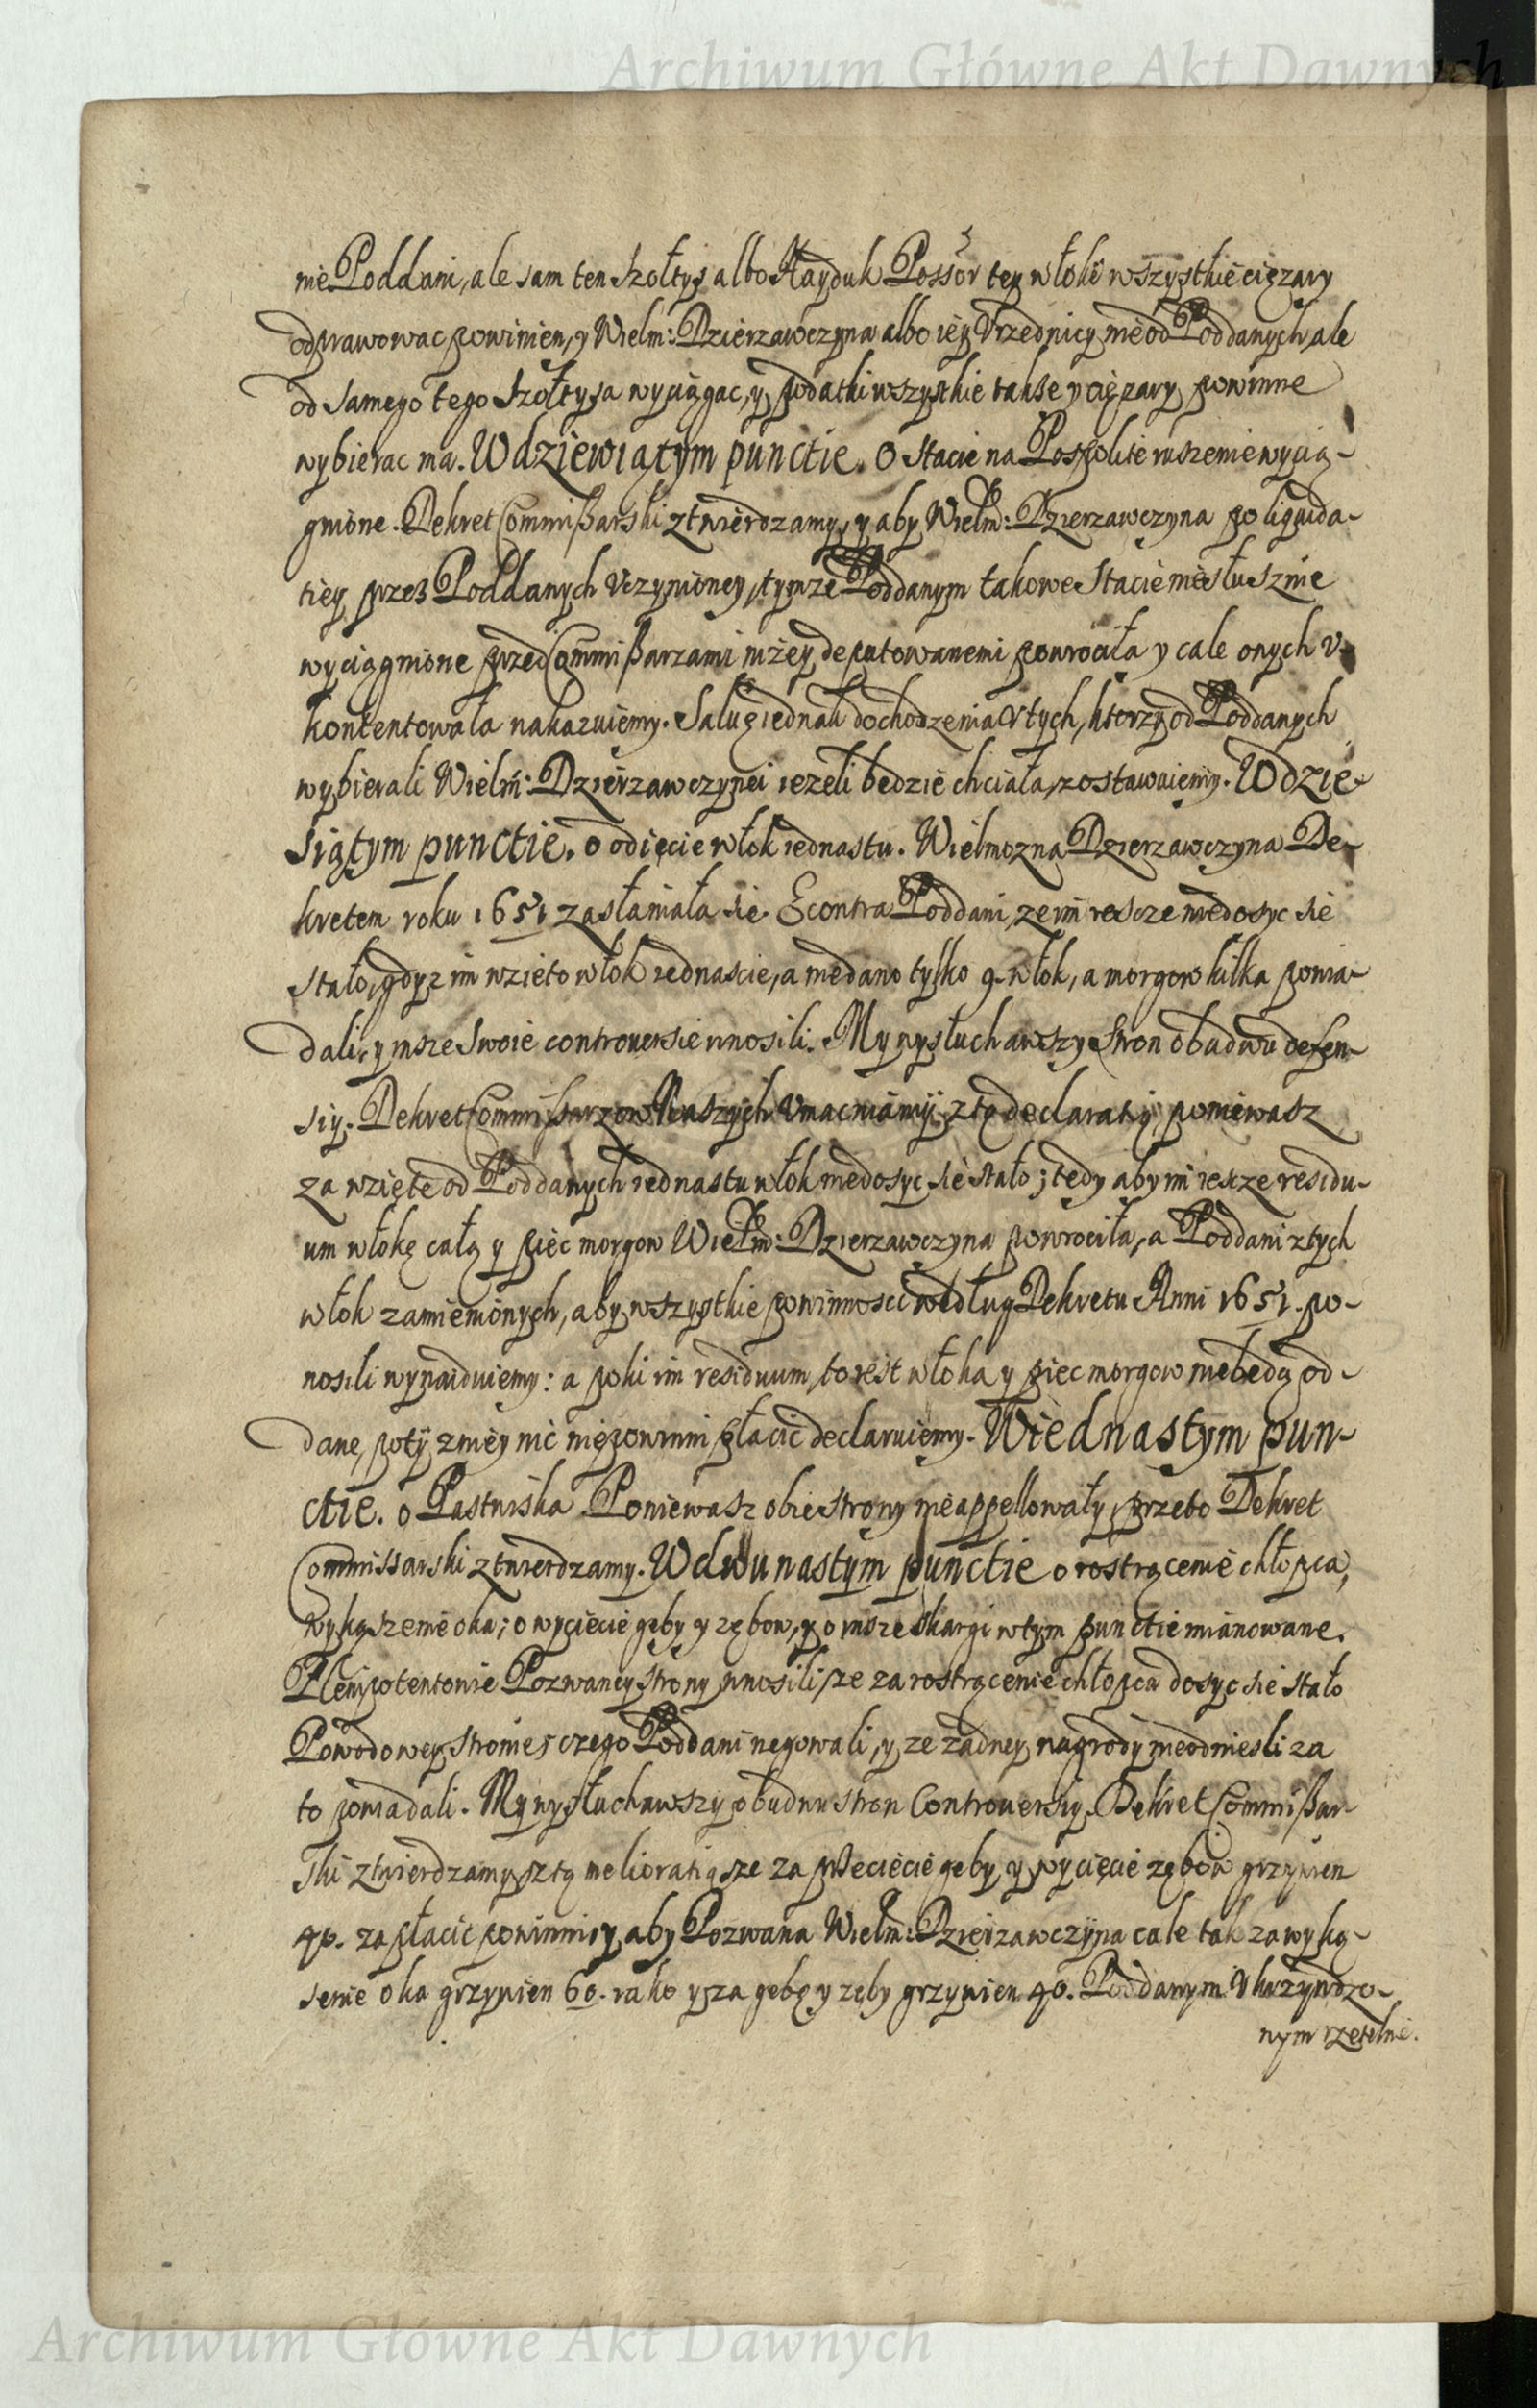 Archiwum Główne Akt Dawnych
nie Poddani, ale sam ten Szołtys albo Hayduk Possor tey włoki wszystkie cięzary
odprawowac powinien, y Wielm: Dzierzawczyna albo iey Vrzednicy nie od Poddanych ale
od samego tego Szołtysa wyciągac, y podatki wszystkie takse y cięzary powinne
wybierac ma. W dziewiątym punctie. O Stacie na Pospolite ruszenie wycią-
gnione. Dekret Commißarski ztwierdzamy, y aby Wielm: Dzierzawczyna po liquida-
tiey przez Poddanych vczynioney, tymze Poddanym takowe Stacie niesłusznie
wyciągnione przed Commißarzami nizey deputowanemi powrociła y cale onych v-
kontentowała nakazuiemy. Saluę iednak dochodzenia v tych, ktorzy od Poddanych
wybierali Wielm: Dzierzawczynei iezeli bedzie chciała, zostawuiemy. W dzie-
siątym punctie. o odięcie włok iednastu. Wielmozna Dzierzawczyna De-
kretem roku 1651 zasłaniała sie. Econtra Poddani, ze im iescze niedosyc sie
stało, gdyz im wzieto włok iednascie, a niedano tylko 9. włok, a morgow kilka powia-
dali, y insze swoie controuersie wnosili. My wysłuchawszy Stron obudwu defen-
siy. Dekret Commissarzow Naszych vmacniamy z tą declaratią, poniewasz
za wzięte od Poddanych iednastu włok niedosyc sie stało; tedy aby im iescze residu-
um włokę całą y pięc morgow Wielm: Dzierzawczyna powrociła, a Poddani z tych
włok zamienionych, aby wszystkie powinnosci według Dekretu Anni 1651. po-
nosili wynaiduiemy: a poki im residuum, to iest włoka y pięc morgow niebedą od-
dane, poty z niey nic niepowinni płacic declaruiemy. W iednastym pun-
ctie. o Pastwiska. Poniewasz obie strony nieappellowały, przeto Dekret
Commissarski ztwierdzamy. W dwunastym punctie o rostrącenie chłopca,
wykąszenie oka; o wycięcie gęby y zębow, y o insze skargi w tym punctie mianowane.
Plenipotentowie Pozwaney strony wnosili, ze za rostrącenie chłopca dosyc sie stało
Powodowey stronie; czego Poddani negowali, y ze zadney nagrody nieodniesli za
to powiadali. My wysłuchawszy obudwu stron Controuersiy. Dekret Commißar-
ski ztwierdzamy, z tą melioratią, ze za przecięcie gęby, y wycięcie zębow grzywien
40. zapłacic powinni, y aby Pozwana Wielm: Dzierzawczyna cale tak za wyką-
senie oka grzywien 60. iako y za gębę y zęby grzywien 40. Poddanym vkrzywdzo-
nym rzetelnie.
Archiwum Główne Akt Dawnych